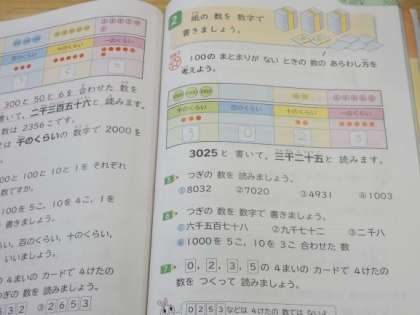 千のくらい
一のくらい
300と 50と 6を 合わせた 数を
書いて、二千三百五十六と 読みます。
数は 2356こです。
千のくらいの 数字で 2000を
100と 10と 1を それぞれ
数ですか。
100を 5こ、10を 4こ、1を
書きましょう。
百のくらい、十のくらい、
いいましょう。
の 4まいの カードで 4けたの
つぎの 数を 読みましょう。
2653
2
紙の 数を 数字で
書きましょう。
100の まとまりが ない ときの 数の あらわし方を
考えよう。
千のくらい 百のくらい 十のくらい 一のくらい
3 0 2 5
3025と 書いて、三千二十五と 読みます。
5 つぎの 数を 読みましょう。
①8032 ②7020 ③4931 ④1003
6 つぎの 数を 数字で 書きましょう。
①六千五百七十八 ②九千七十二 ③二千八
④1000を 5こ、10を 3こ 合わせた 数
7 0、2、3、5の 4まいの カードで 4けたの
数を つくって 読みましょう。
0253などは 4けたの 数では ないよ